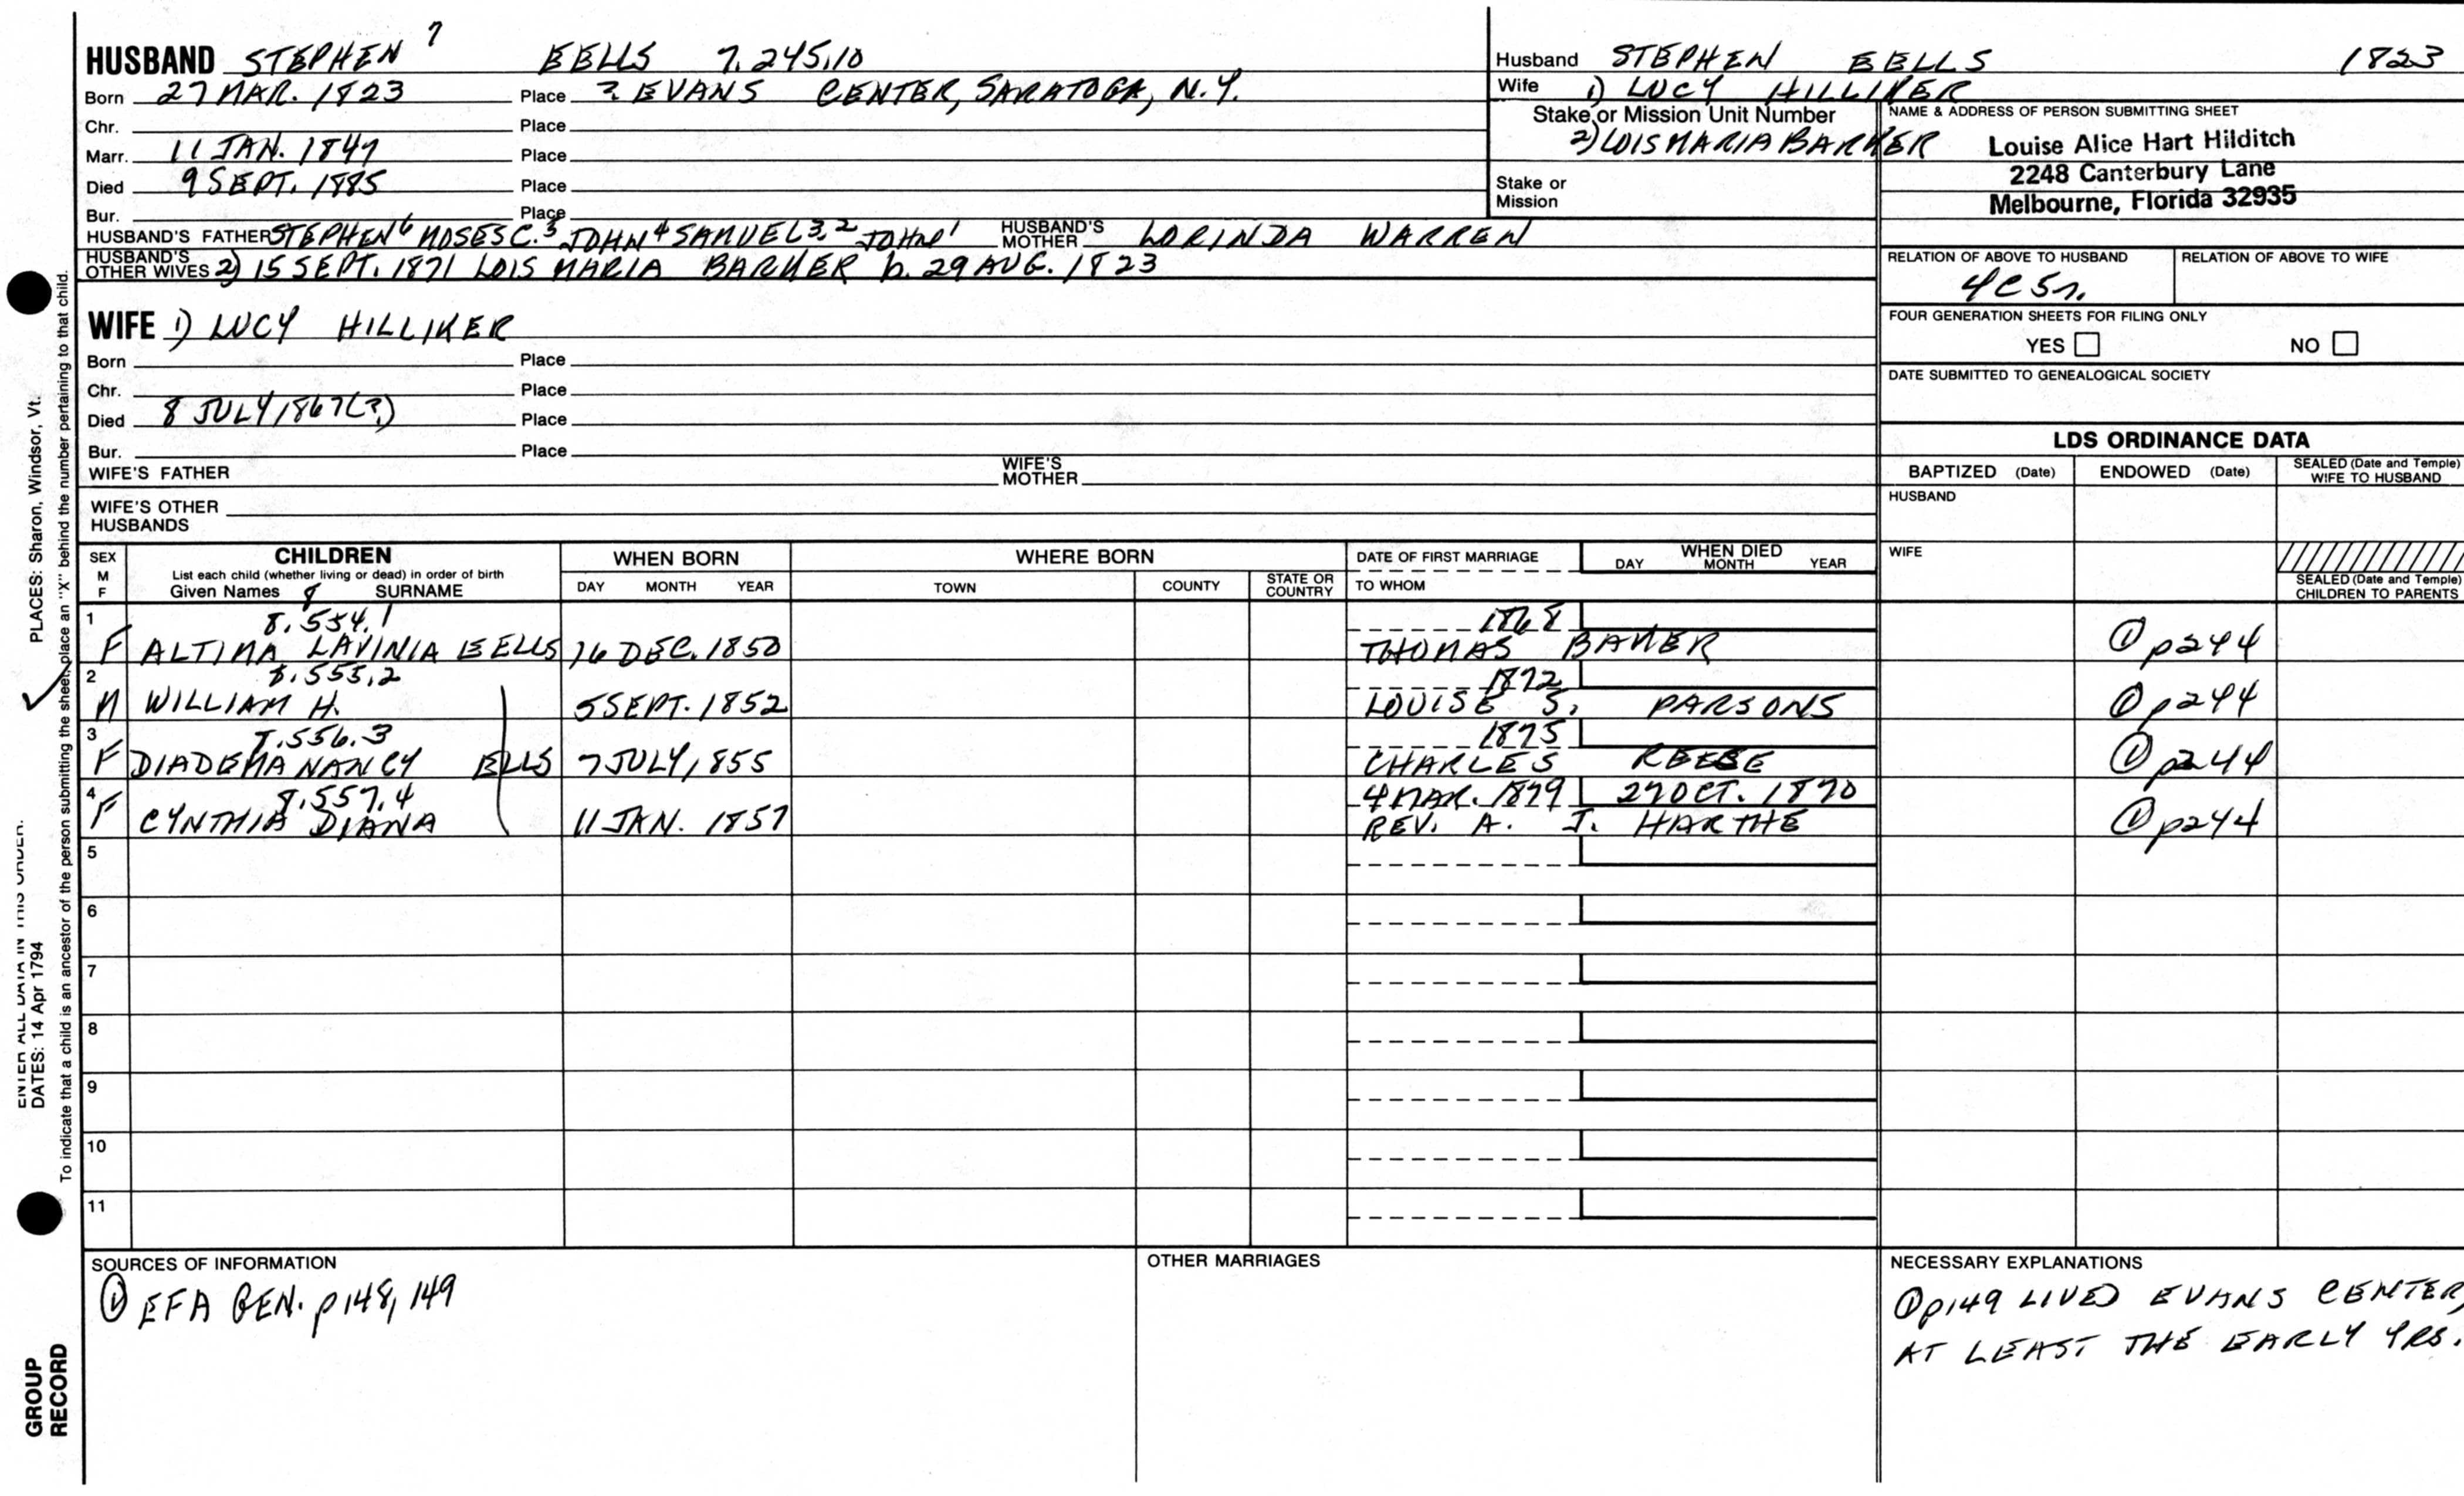 HUSBAND STEPHEN 7 EELLS 7.245.10
Born 27 MAR. 1823 Place ? EVANS CENTER, SARATOGA, N.Y.
Chr. Place
Marr. 11 JAN. 1849 Place
Died 9 SEPT. 1885 Place
Bur. Place
HUSBAND'S FATHER STEPHEN 6 MOSES C. 5 JOHN 4 SAMUEL 3,2 JOHN 1 HUSBAND'S MOTHER LORINDA WARREN
HUSBAND'S OTHER WIVES 2) 15 SEPT. 1871 LOIS MARIA BARKER b. 29 AUG. 1823
WIFE 1) LUCY HILLIKER
Born Place
Chr. Place
Died 8 JULY 1867(?) Place
Bur. Place
WIFE'S FATHER WIFE'S MOTHER
WIFE'S OTHER HUSBANDS
Husband STEPHEN EELLS 1823
Wife 1) LUCY HILLIKER
Stake or Mission Unit Number
2) LOIS MARIA BARKER
Stake or Mission
NAME & ADDRESS OF PERSON SUBMITTING SHEET
Louise Alice Hart Hilditch
2248 Canterbury Lane
Melbourne, Florida 32935
RELATION OF ABOVE TO HUSBAND RELATION OF ABOVE TO WIFE
4C5r.
FOUR GENERATION SHEETS FOR FILING ONLY
YES NO
DATE SUBMITTED TO GENEALOGICAL SOCIETY
LDS ORDINANCE DATA
BAPTIZED (Date) ENDOWED (Date) SEALED (Date and Temple) WIFE TO HUSBAND
HUSBAND
WIFE
SEALED (Date and Temple) CHILDREN TO PARENTS
SEX M F CHILDREN WHEN BORN WHERE BORN DATE OF FIRST MARRIAGE WHEN DIED
List each child (whether living or dead) in order of birth
Given Names 8 SURNAME DAY MONTH YEAR TOWN COUNTY STATE OR COUNTRY TO WHOM DAY MONTH YEAR
1 8.554.1 1868
F ALTINA LAVINIA EELLS 16 DEC. 1850 THOMAS BAKER ① p244
2 8.555.2 1872
M WILLIAM H. 5 SEPT. 1852 LOUISE S. PARSONS ① p244
3 8.556.3 1875
F DIADEMA NANCY EELLS 7 JULY, 1855 CHARLES REESE ① p244
4 8.557.4 4 MAR. 1879 27 OCT. 1890
F CYNTHIA DIANA 11 JAN. 1857 REV. A. J. HARTHE ① p244
5
6
7
8
9
10
11
SOURCES OF INFORMATION
① EFA GEN. p148, 149
OTHER MARRIAGES
NECESSARY EXPLANATIONS
① p149 LIVED EVANS CENTER,
AT LEAST THE EARLY YRS.
ENTER ALL DATA IN THIS ORDER:
PLACES: Sharon, Windsor, Vt.
DATES: 14 Apr 1794
To indicate that a child is an ancestor of the person submitting the sheet, place an "X" behind the number pertaining to that child.
GROUP
RECORD